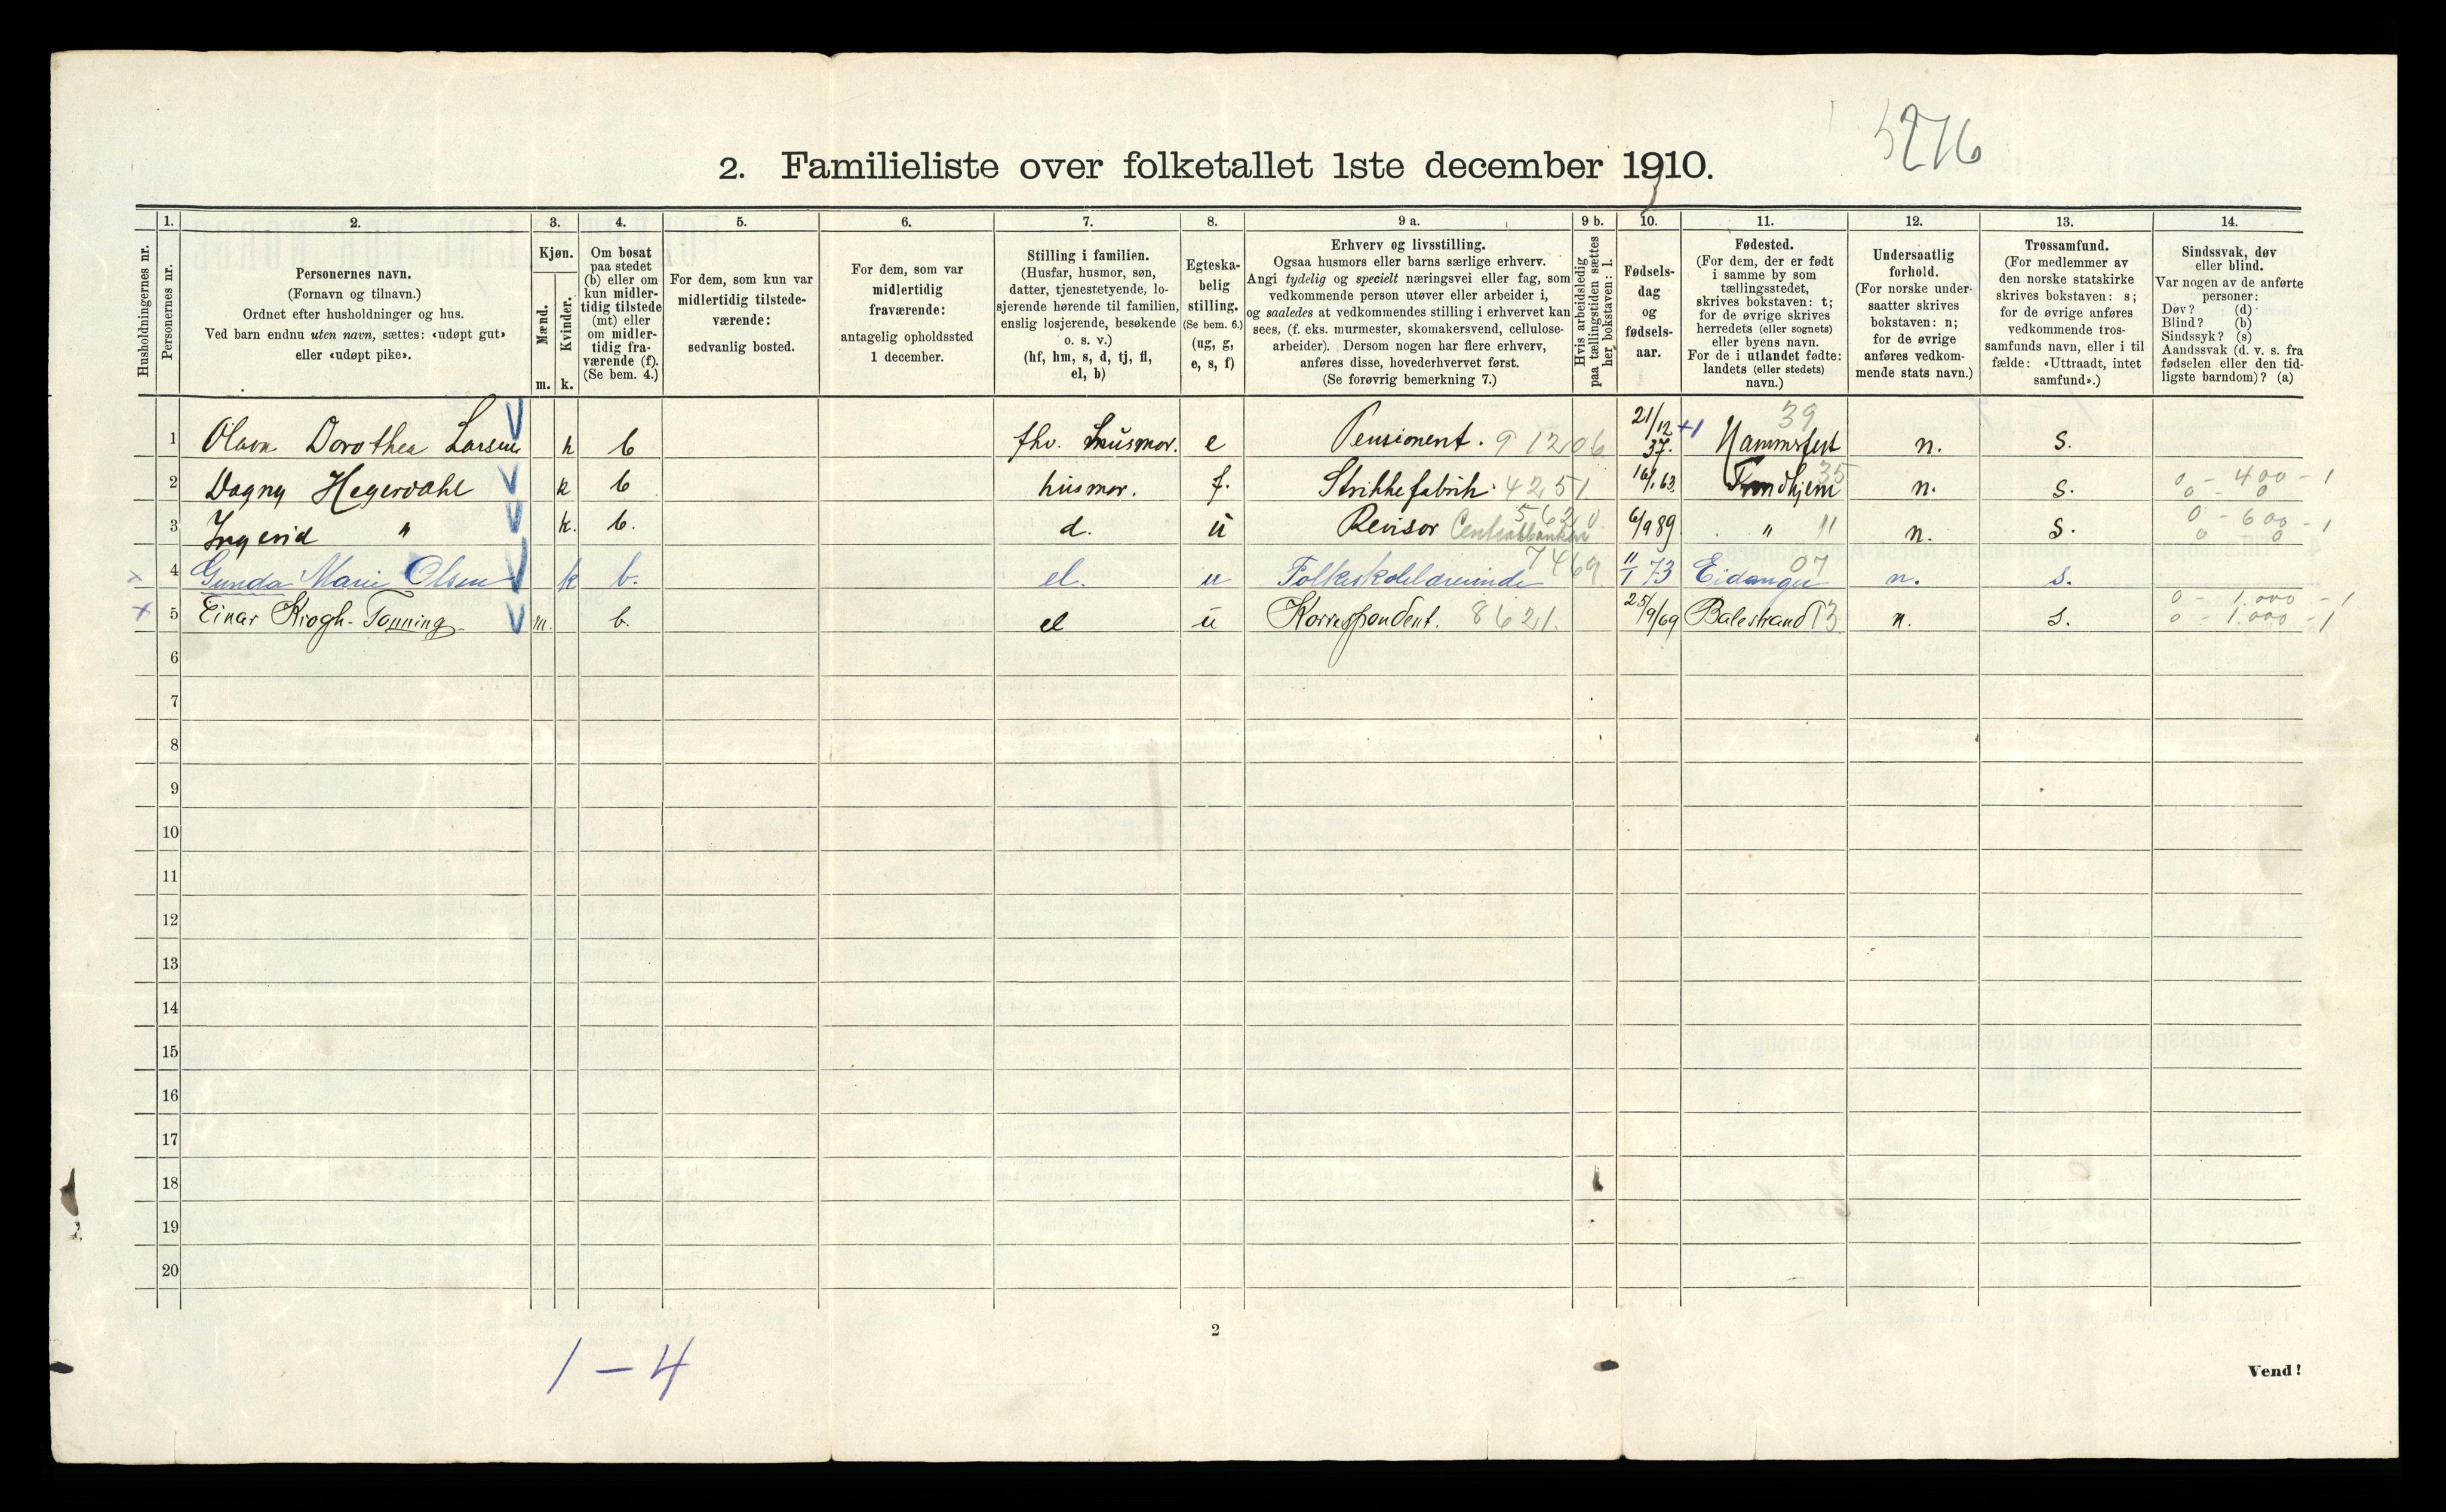 5276
2. Familieliste over folketallet 1ste december 1910.
Husholdningernes nr.
1. Personernes nr.
2. Personernes navn. (Fornavn og tilnavn.) Ordnet efter husholdninger og hus. Ved barn endnu uten navn, sættes: «udøpt gut» eller «udøpt pike».
3. Kjøn. Mænd. m. Kvinder. k.
4. Om bosat paa stedet (b) eller om kun midlertidig tilstede (mt) eller om midlertidig fraværende (f). (Se bem. 4.)
5. For dem, som kun var midlertidig tilstedeværende: sedvanlig bosted.
6. For dem, som var midlertidig fraværende: antagelig opholdssted 1 december.
7. Stilling i familien. (Husfar, husmor, søn, datter, tjenestetyende, losjerende hørende til familien, enslig losjerende, besøkende o. s. v.) (hf, hm, s, d, tj, fl, el, b)
8. Egteskabelig stilling. (Se bem. 6.) (ug, g, e, s, f)
9 a. Erhverv og livsstilling. Ogsaa husmors eller barns særlige erhverv. Angi tydelig og specielt næringsvei eller fag, som vedkommende person utøver eller arbeider i, og saaledes at vedkommendes stilling i erhvervet kan sees, (f. eks. murmester, skomakersvend, cellulosearbeider). Dersom nogen har flere erhverv, anføres disse, hovederhvervet først. (Se forøvrig bemerkning 7.)
9 b. Hvis arbeidsledig paa tællingstiden sættes her bokstaven: l.
10. Fødselsdag og fødselsaar.
11. Fødested. (For dem, der er født i samme by som tællingsstedet, skrives bokstaven: t; for de øvrige skrives herredets (eller sognets) eller byens navn. For de i utlandet fødte: landets (eller stedets) navn.)
12. Undersaatlig forhold. (For norske undersaatter skrives bokstaven: n; for de øvrige anføres vedkommende stats navn.)
13. Trossamfund. (For medlemmer av den norske statskirke skrives bokstaven: s; for de øvrige anføres vedkommende trossamfunds navn, eller i tilfælde: «Uttraadt, intet samfund».)
14. Sindssvak, døv eller blind. Var nogen av de anførte personer: Døv? (d) Blind? (b) Sindssyk? (s) Aandssvak (d. v. s. fra fødselen eller den tidligste barndom)? (a)
1 Olava Dorothea Larsen k b fhv. husmor. e Pensionent. 91206 21/12 37. +1 Hammerfest 39 n. s.
2 Dagny Hegerdahl k b husmor. f. Strikkefabrik 4251 16/1 63. Trondhjem 35 n. s. 0 - 400 - 1
3 Ingerid " k. b. d. u Revisor Centralbanken 5620. 6/9 89 " 11 n. s. 0 - 600 - 1
4 Gunda Marie Olsen k b. el. u Folkeskolelærerinde 7469 11/1 73 Eidanger 07 n. s.
5 Einar Krogh-Tonning m. b. el u Korrespondent. 8621. 25/9/69 Balestrand 13 n. s. 0 - 1.000 - 1
0 - 1.000 - 1
6
7
8
9
10
11
12
13
14
15
16
17
18
19
20
2
1 - 4
Vend!